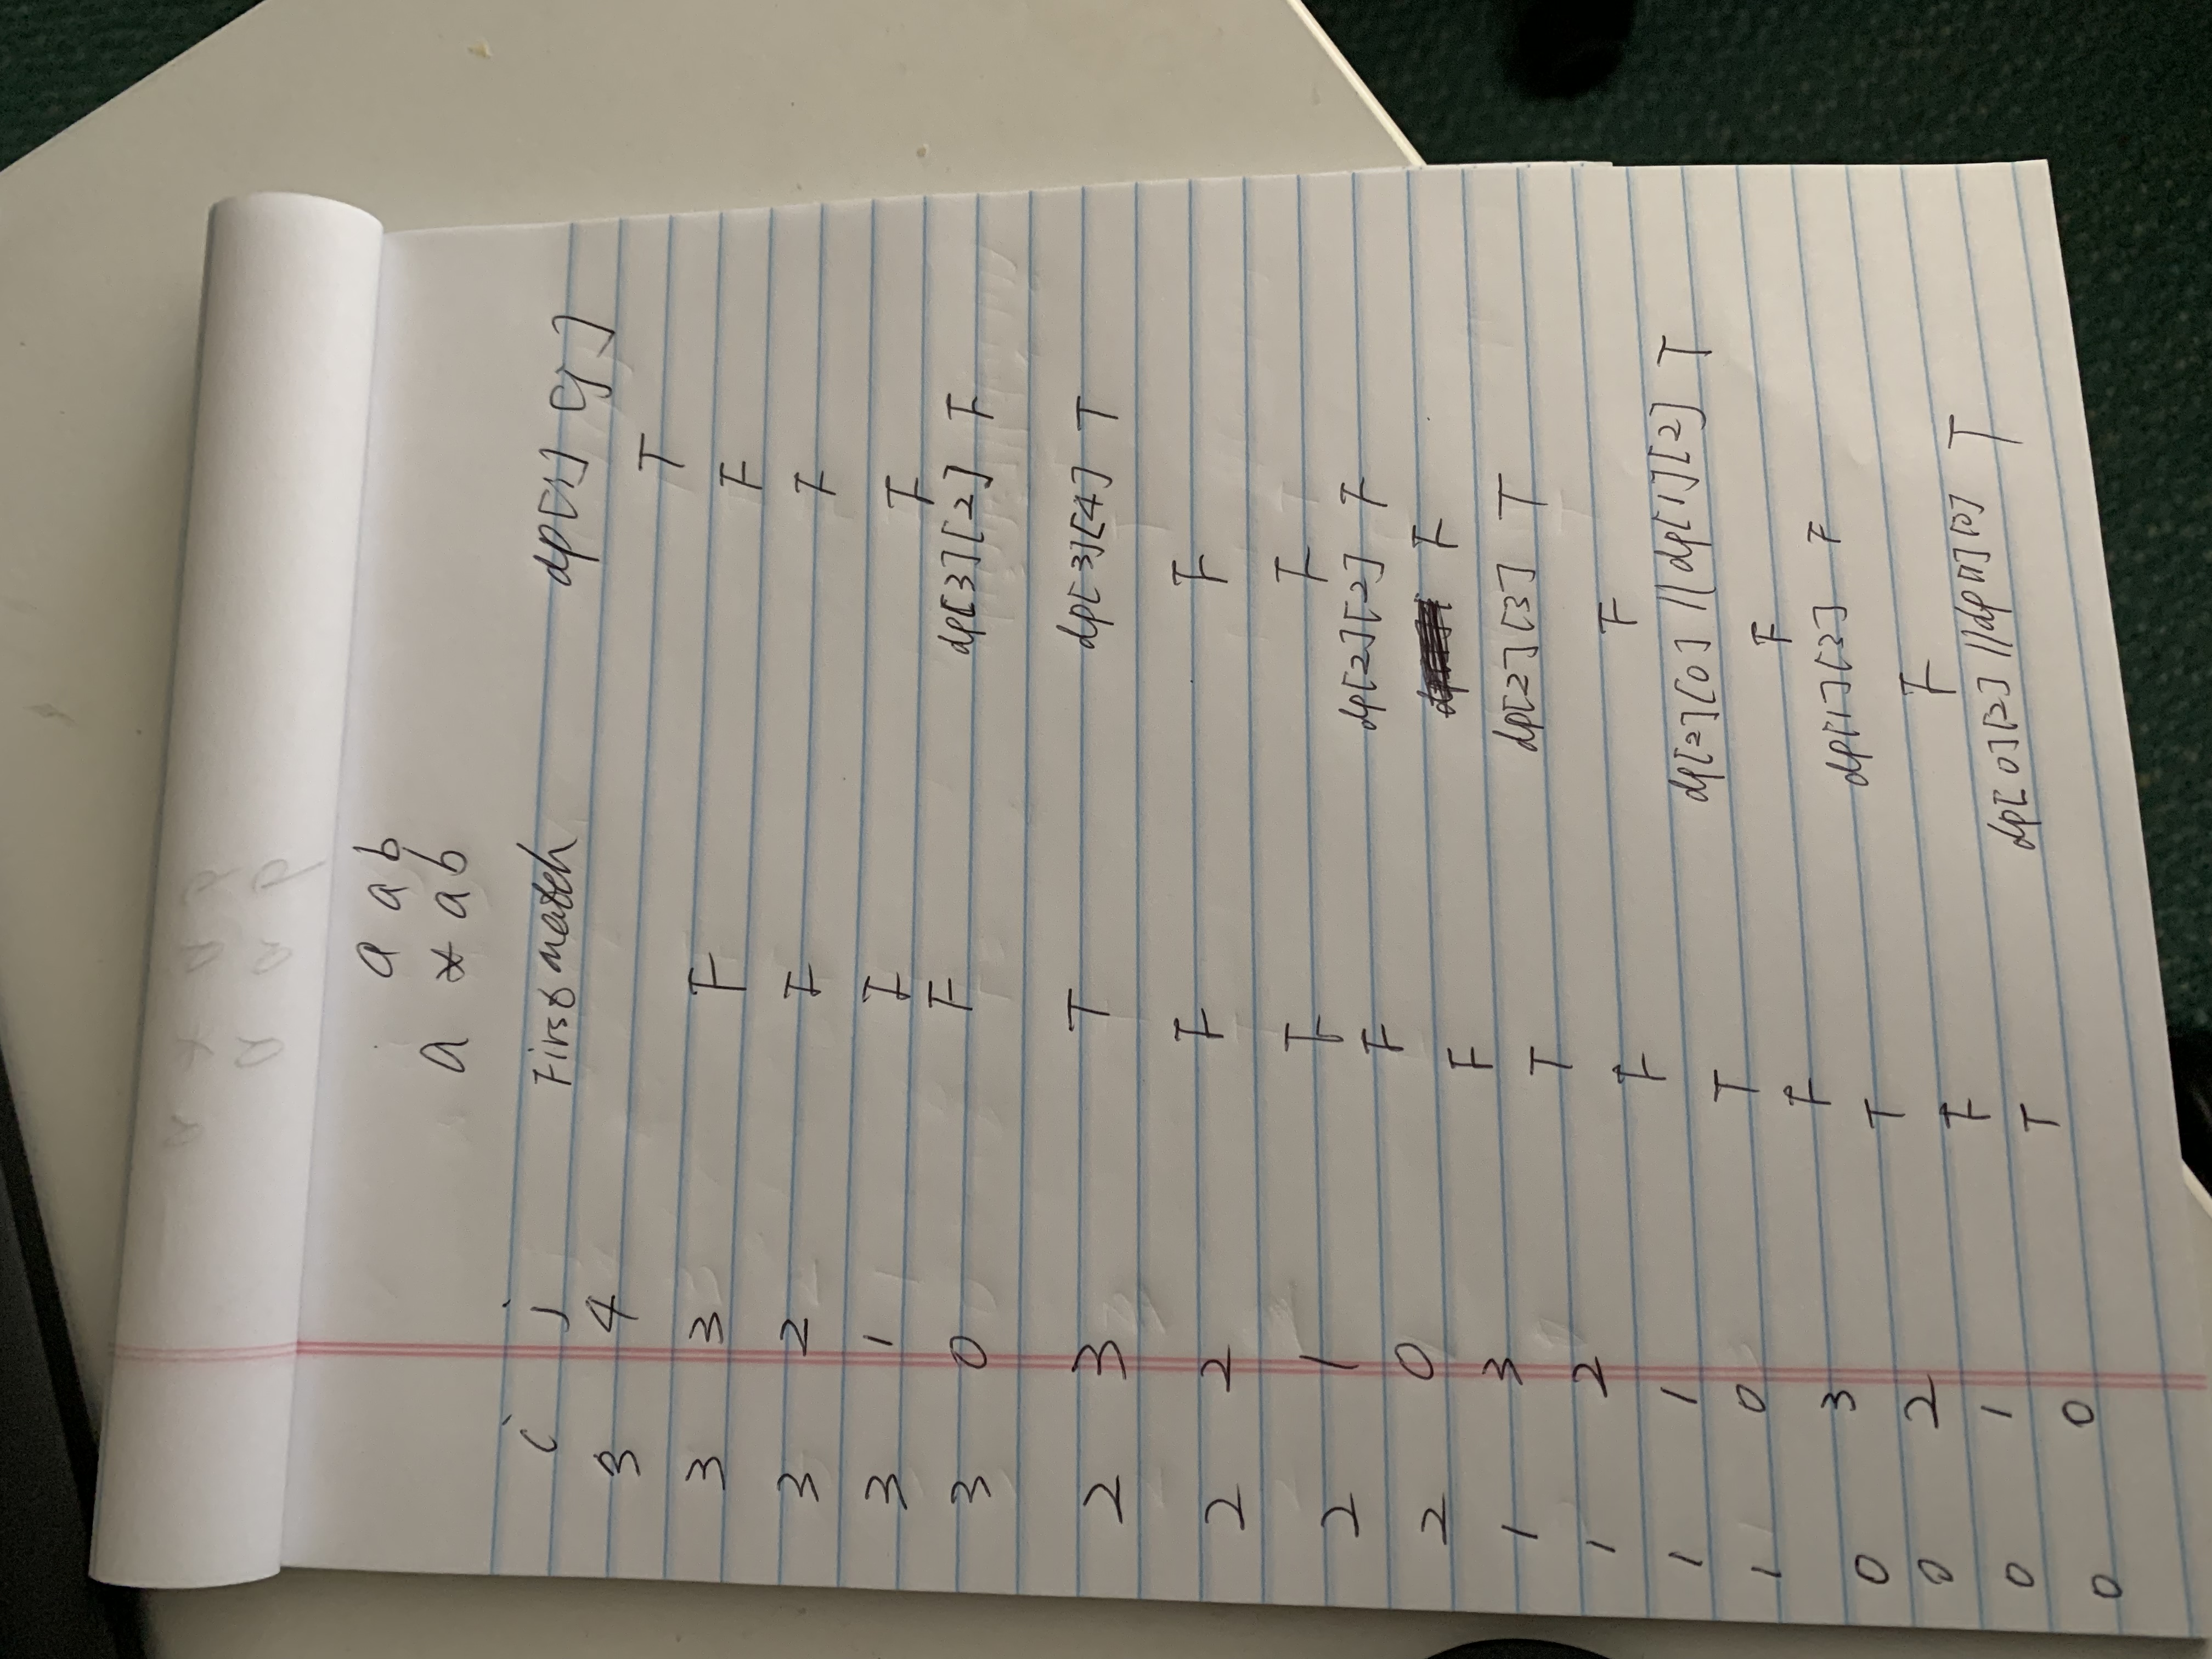 a a b
a * a b
i j First match dp[i][j]
3 4 T
3 3 F F
3 2 F F
3 1 F F
3 0 F dp[3][2] F
2 3 T dp[3][4] T
2 2 F F
2 1 F F
2 0 F dp[2][2] F
1 3 F F
1 2 T dp[2][3] T
1 1 F F
1 0 T dp[2][0] || dp[1][2] T
0 3 F F
0 2 T dp[1][3] F
0 1 F F
0 0 T dp[0][2] || dp[1][0] T